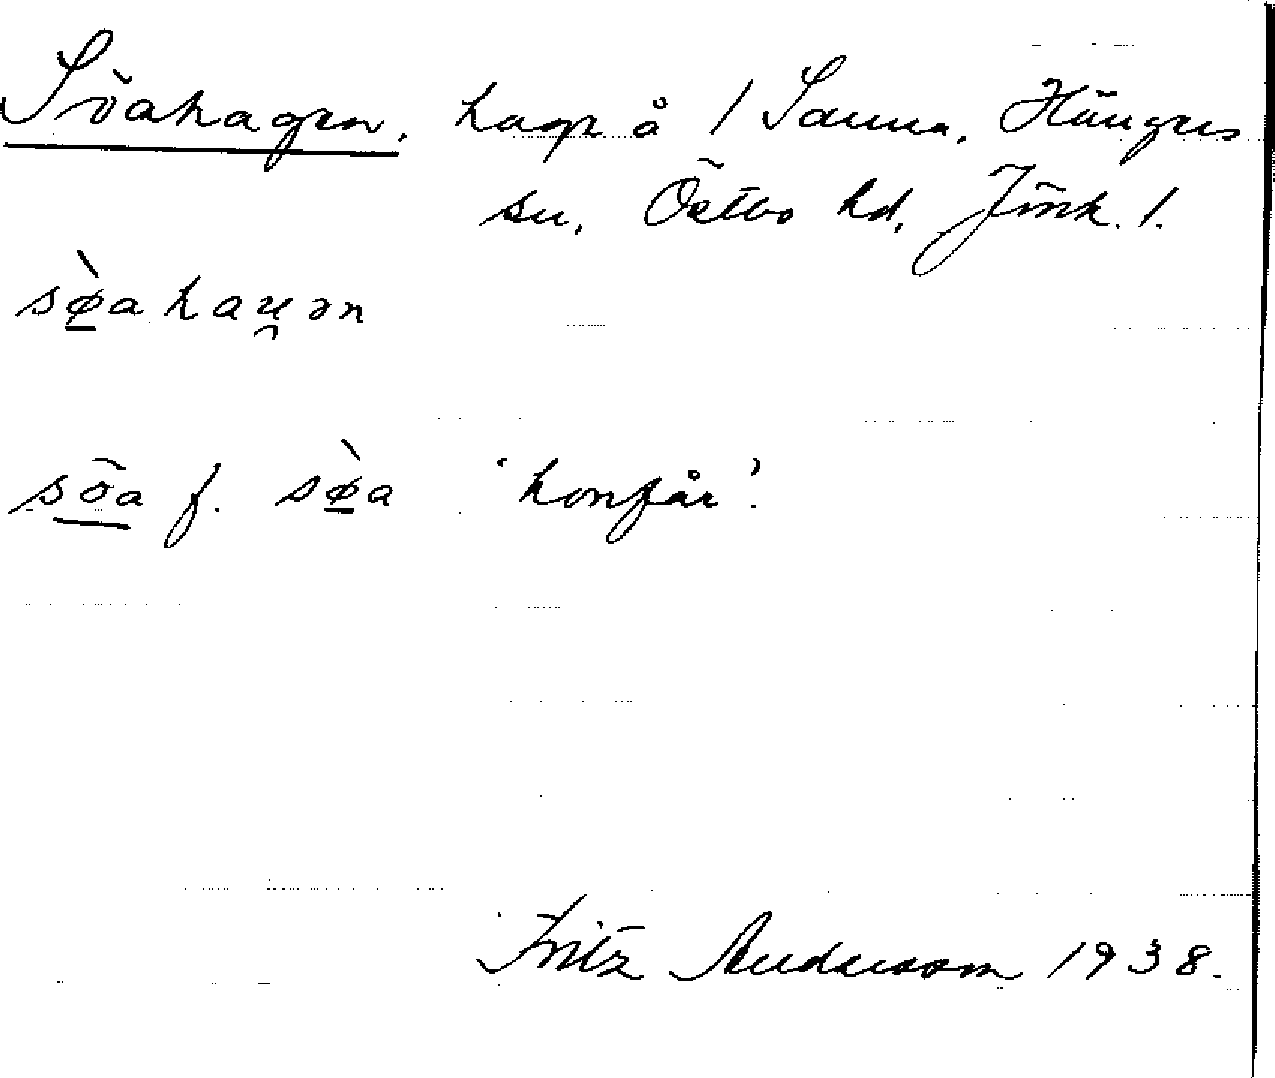 Söahagen, hage å 1 Sanna, Hånger
sn, Östbo hd, Jönk. l.
sø̀ahaꭎən
söa f. sø̀a 'honfår'.
Fritz Andersson 1938.